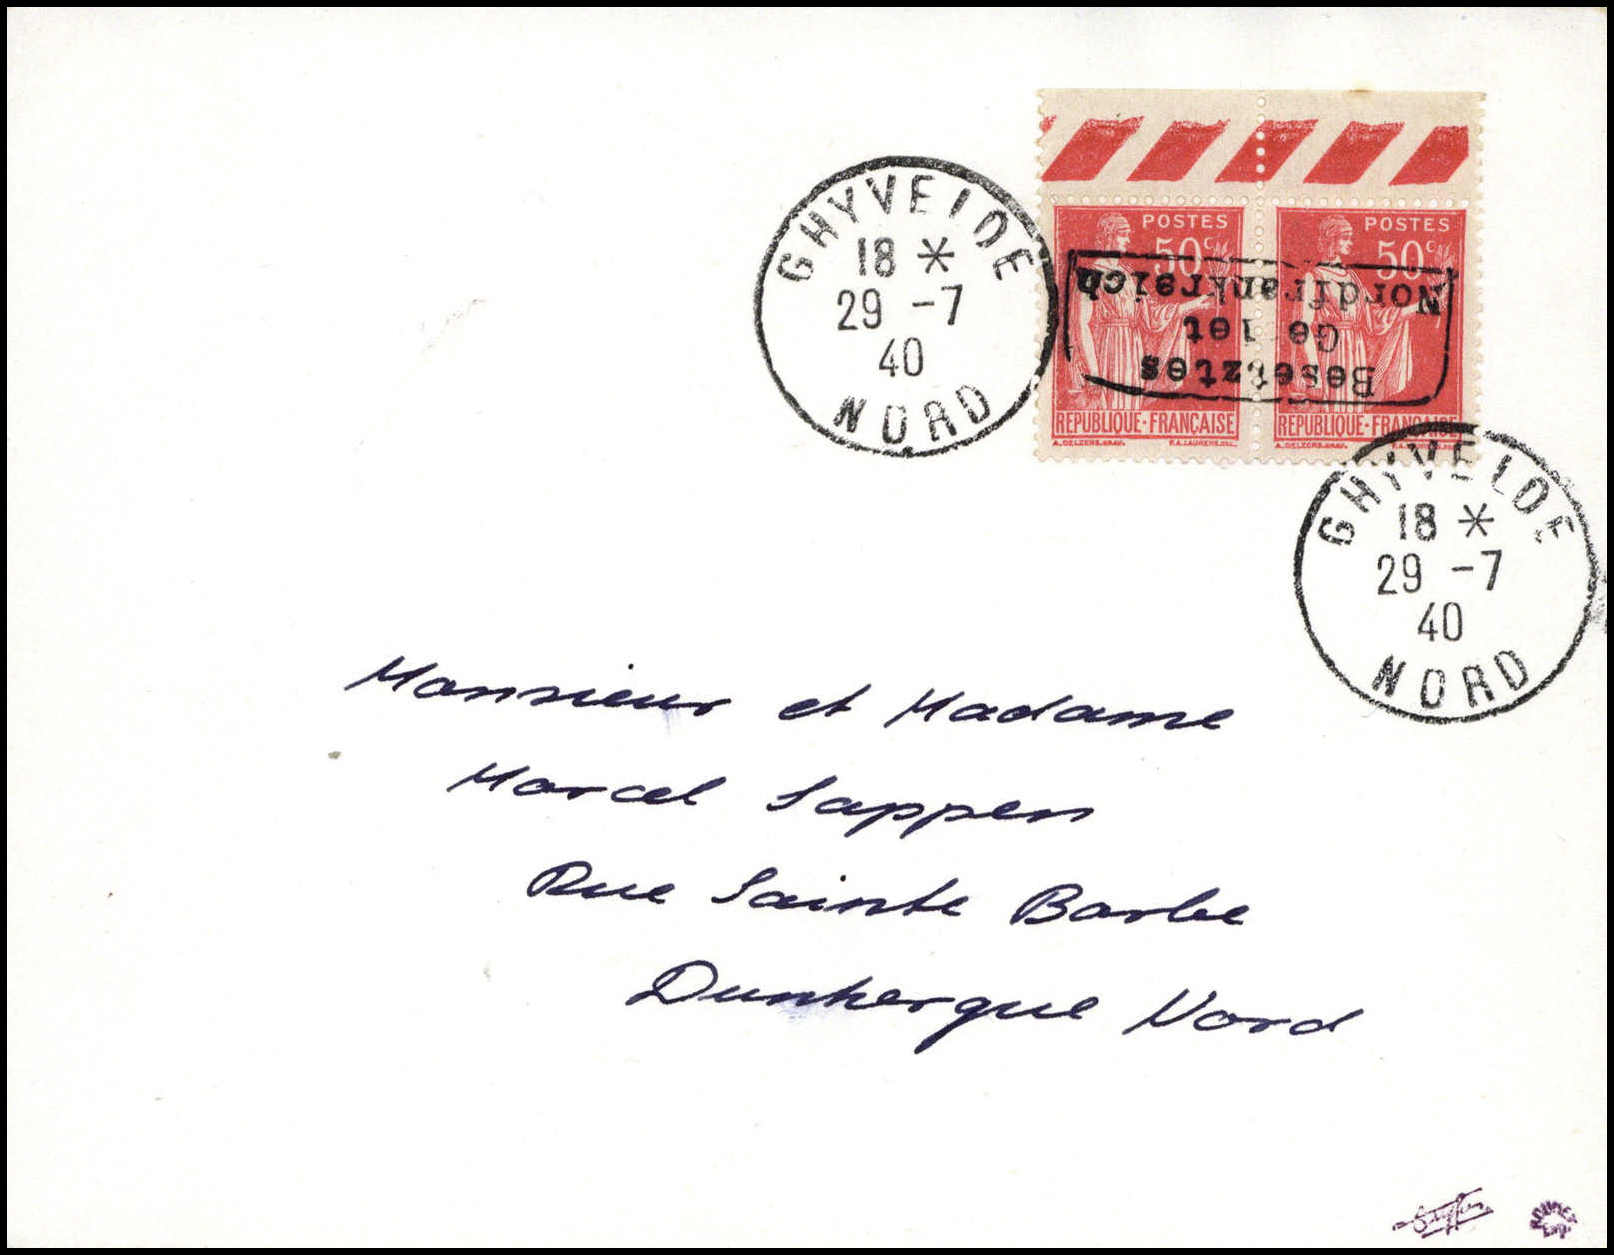 POSTES
50c
REPUBLIQUE-FRANÇAISE
A.DELZERS.GRAV. F.A.LAURENS.DEL.
POSTES
50c
REPUBLIQUE-FRANÇAISE
A.DELZERS.GRAV.
Besetztes
Ge iet
Nordfrankreich
GHYVELDE
18 *
29 -7
40
NORD
GHYVELDE
18 *
29 -7
40
NORD
Monsieur et Madame
Marcel Sappen
Rue Sainte Barbe
Dunkerque Nord